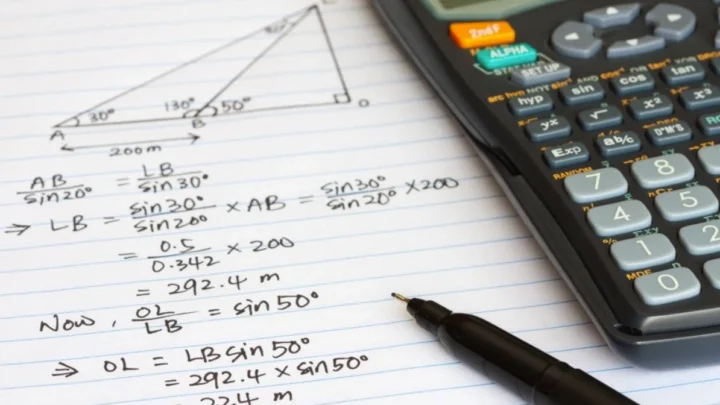 20°
30°
130°
50°
A
B
O
200m
AB/sin20° = LB/sin30°
⇒ LB = sin30°/sin20° × AB = sin30°/sin20° × 200
= 0.5/0.342 × 200
= 292.4 m
Now, OL/LB = sin50°
⇒ OL = LB sin50°
= 292.4 × sin50°
22.4 m
2ndF
ALPHA
SET UP
hyp sin cos tan
yˣ √ x² x³
Exp ab/c D°M'S
RANDOM
7 8
4 5
1 2
0